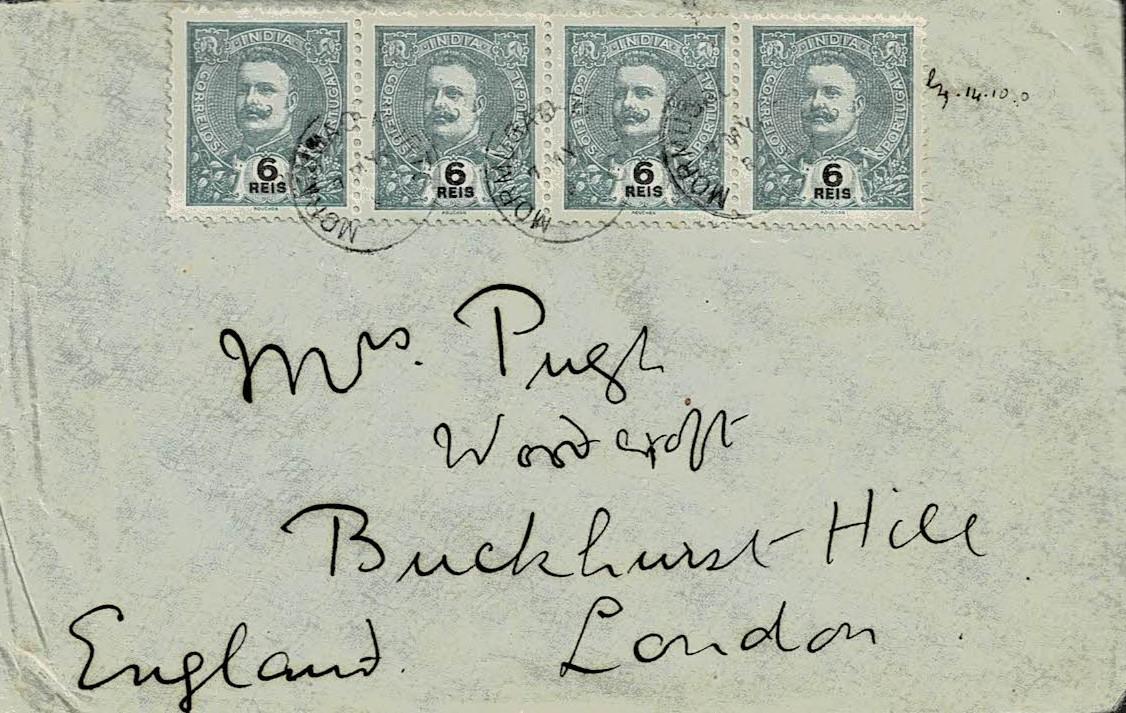 INDIA INDIA INDIA INDIA
CORREIOS PORTUGAL CORREIOS PORTUGAL CORREIOS PORTUGAL CORREIOS PORTUGAL
6 6 6 6
REIS REIS REIS REIS
MORMUGAO MORMUGAO MORMUGAO
7 MY
Mrs. Pugh
Woodcroft
Buckhurst Hill
England. London.